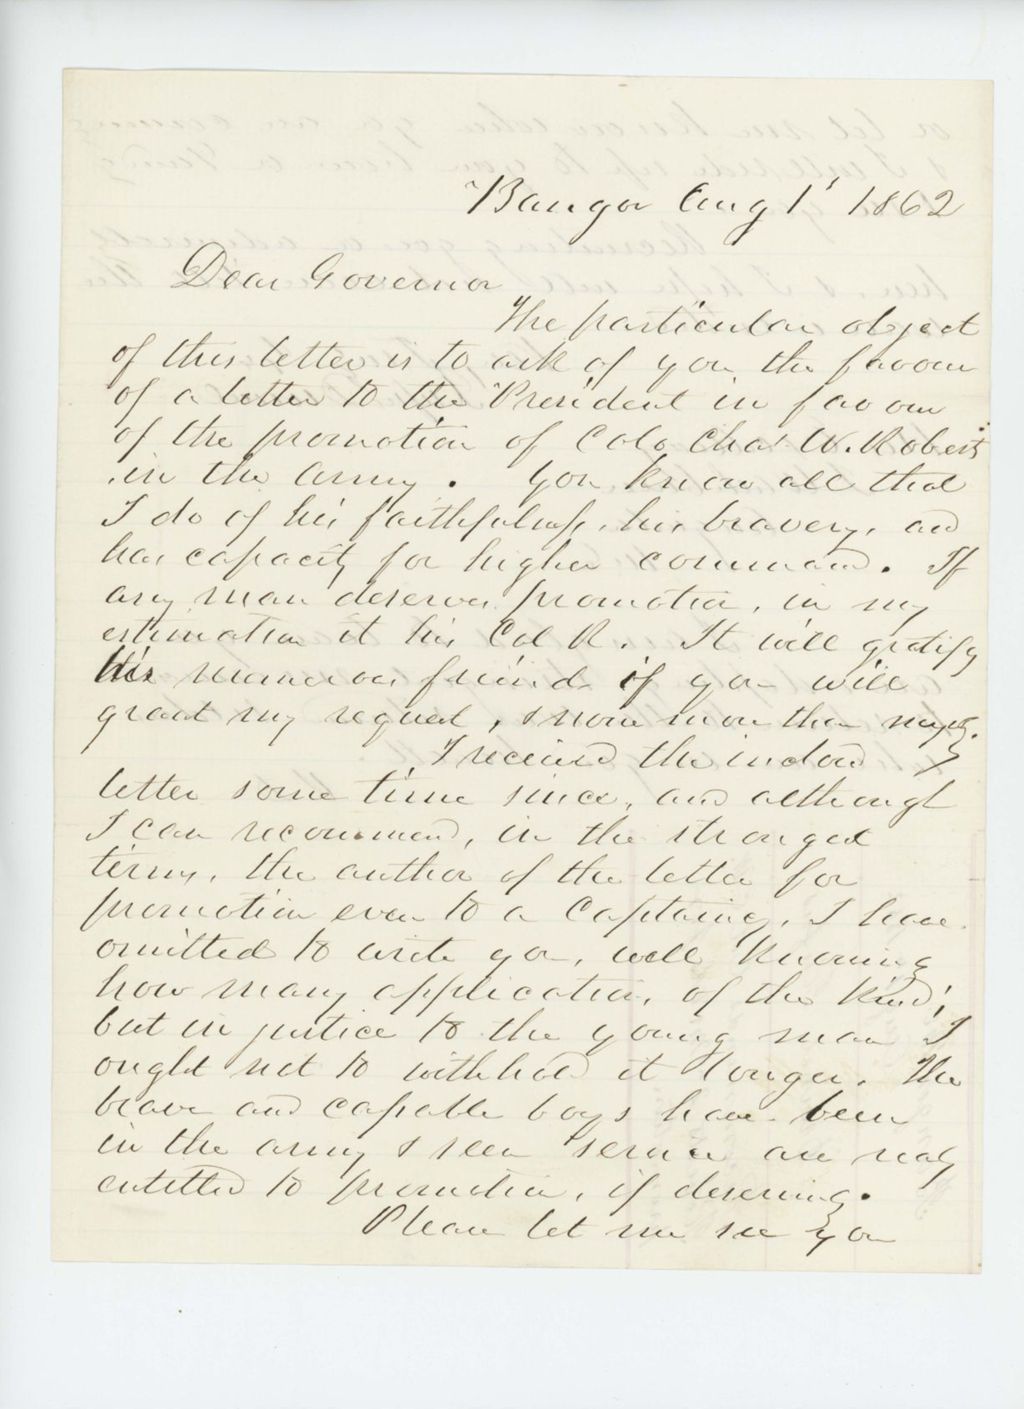 Bangor Aug 1st 1862
Dear Governor
The particular object
of this letter is to ask of you the favour
of a letter to the President in favour
of the promotion of Colo Chas W. Roberts
in the Army. You know all that
I do of his faithfulness, his bravery, and
his capacity for higher command. If
any man deserves promotion, in my
estimation it his Col R. It will gratify
his numerous friends if you will
grant my request, & none more than myself.
I received the inclosed
letter some time since, and although
I can recommend, in the strongest
terms, the author of the letter for
promotion even to a Captaincy, I have
omitted to write you, well knowing
how many applications of the kind;
but in justice to the young man I
ought not to withhold it longer. The
brave and capable boys have been
in the army & seen service are really
entitled to promotion, if deserving.
Please let me see you